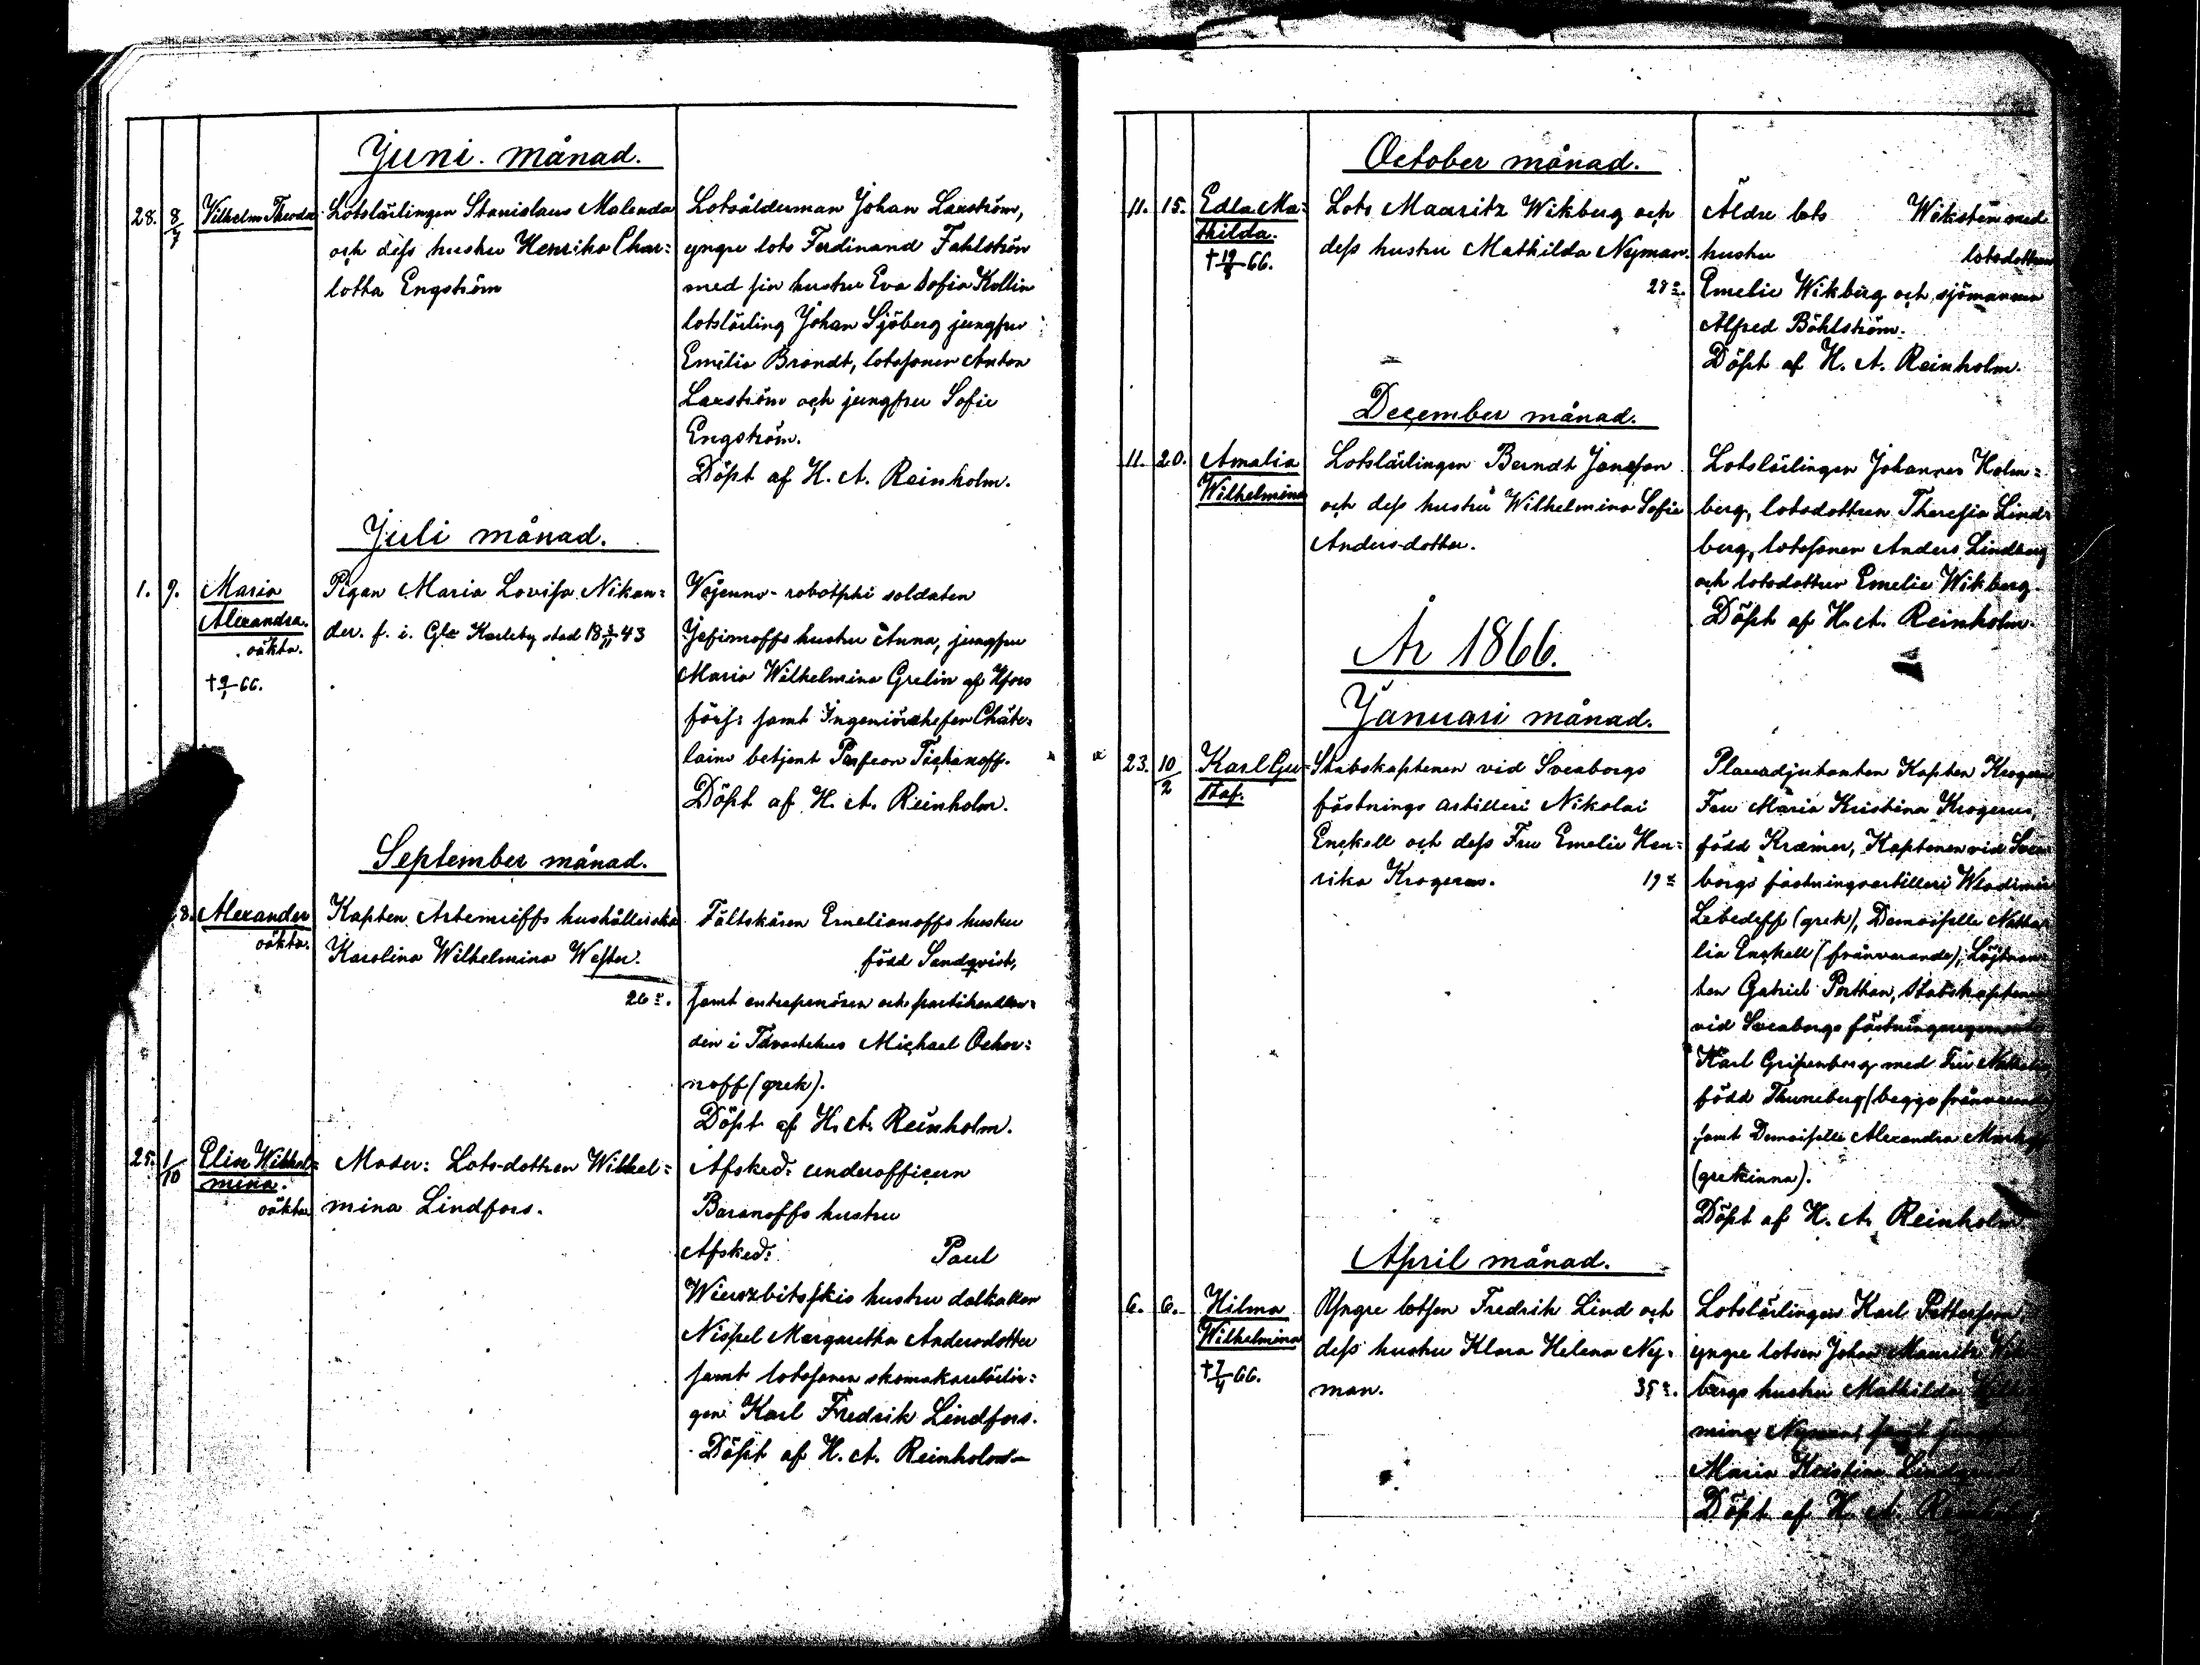 Juni månad.
28. 8/7 Vilhelm Theodor
Lotslärlingen Stanislaus Malenda
och dess hustru Henrika Char=
lotta Engström
Lotsålderman Johan Laxström,
yngre lots Ferdinand Fahlström
med sin hustru Eva Sofia Kollin
lotslärling Johan Sjöberg jungfru
Emilia Brandt, lotssonen Anton
Laxström och jungfru Sofie
Engström.
Döpt af H. A. Reinholm.
Juli månad.
1. 9. Maria
Alexandra.
oäkta.
† 9/7 66.
Pigan Maria Lovisa Nikan=
der. f. i. Gla Karleby stad 18 3/11 43
Wojenno-robotshi soldaten
Jefimoffs hustru Anna, jungfru
Maria Wilhelmina Grelin af Hfors
förs: samt Ingeniörchefen Châte=
lains betjent Parfeon Tichanoff.
Döpt af H. A. Reinholm.
September månad.
8. Alexander
oäkta.
Kapten Artemieffs hushållerska
Karolina Wilhelmina Wester.
26 r.
Fältskären Emelianoffs hustru
född Sandqvist,
samt entreprenören och partihandlan=
den i Tavastehus Michael Ochor=
noff (grek).
Döpt af H. A. Reinholm.
25. 1/10 Elin Wilhel=
mina.
oäkta
Moder: Lots-dottren Wilhel=
mina Lindfors.
Afsked: underofficern
Baranoffs hustru
Afsked: Paul
Wierzbitskis hustru dalkullan
Nispel Margaretha Andersdotter
samt lotssonen skomakarelärlin=
gen Karl Fredrik Lindfors.
Döpt af H. A. Reinholm
October månad.
11. 15. Edla Ma=
thilda.
† 19/8 66.
Lots Mauritz Wikberg och
dess hustru Mathilda Nyman.
28 r.
Äldre lots Wikstén med
hustru lotsdottren
Emelie Wikberg och sjömannen
Alfred Böhlström.
Döpt af H. A. Reinholm.
December månad.
11. 20. Amalia
Wilhelmina
Lotslärlingen Berndt Jansson
och dess hustru Wilhelmina Sofie
Anders-dotter.
Lotslärlingen Johannes Holm=
berg, lotsdottren Theresia Lind=
berg, lotssonen Anders Lindberg
och lotsdottren Emelie Wikberg.
Döpt af H. A. Reinholm.
År 1866.
Januari månad.
23. 10/2 Karl Gu=
staf.
Stabskaptenen vid Sveaborgs
fästnings artilleri Nikolai
Enckell och dess Fru Emelie Hen=
rika Krogerus.
19 r
Placeadjutanten Kapten Krogerus
Fru Maria Kristina Krogerus,
född Kræmer, Kaptenen vid Svea
borgs fästningsartilleri Wladimir
Lebedeff (grek), Demoiselle Natha
lia Enckell (frånvarande), Löjtnan
ten Gabriel Porthan, Stabskaptenen
vid Sveaborgs fästningsregemente
Karl Gripenberg med Fru Nathalia
född Thuneberg (begge frånvarande)
samt Demoiselle Alexandra
(grekinna).
Döpt af H. A. Reinholm
April månad.
6. 6. Hilma
Wilhelmina
† 7/4 66.
Yngre lotsen Fredrik Lind och
dess hustru Klara Helena Ny=
man. 35 r.
Lotslärlingen Karl Pettersson,
yngre lotsen Johan Mauritz Wik
bergs hustru Mathilda
mina Nyman, samt
Maria Kristina
Döpt af H. A.